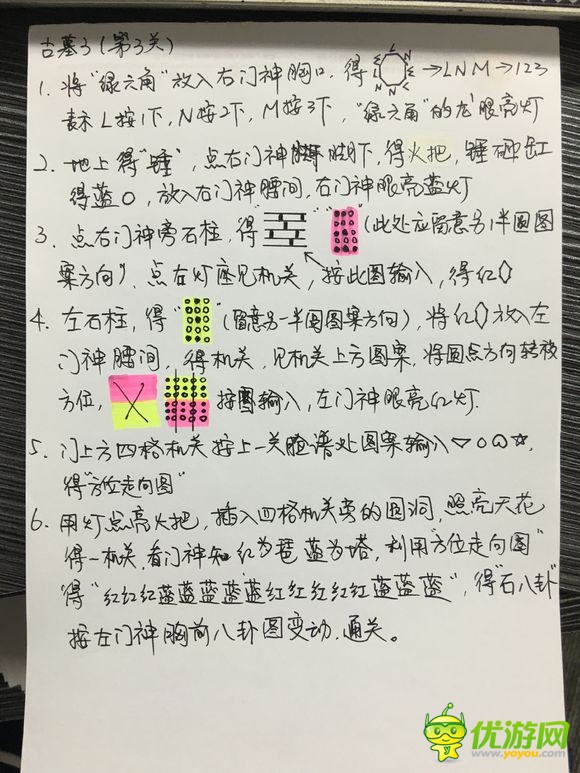 古墓3(第3关)
1. 将"绿六角"放入右门神胸口，得 →LNM→123
表示L按1下，N按2下，M按3下，"绿六角"的龙眼亮灯
2. 地上得"锤"，点右门神脚下，得火把，锤砸缸
得蓝〇，放入右门神腰间，右门神眼亮蓝灯
3. 点右门神旁石柱，得" " " "(此处应留意另1半圆图
案方向)，点右灯座见机关，按此图输入，得红◊
4. 左石柱，得" "(留意另一半圆图案方向)，将红◊放入左
门神腰间，得机关，见机关上方图案，将圆点方向转换
方位， 按图输入，左门神眼亮红灯.
5. 门上方四格机关按上一关脸谱处图案输入▽○ ☆，
得"方位走向图"
6. 用灯点亮火把，插入四格机关旁的圆洞，照亮天花
得一机关，看门神知红为琶 蓝为塔，利用"方位走向图"
得"红红红蓝蓝蓝蓝蓝红红红红红蓝蓝蓝"，得"石八卦"
按左门神胸前八卦图变动，通关。
优游网
www.yoyou.com